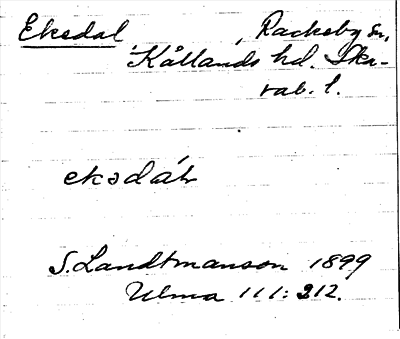 Eksdal, Rackeby sn,
Kållands hd. Ska-
rab. l.
eksdàɫ
S. Landtmanson 1899
Ulma 111: 312.